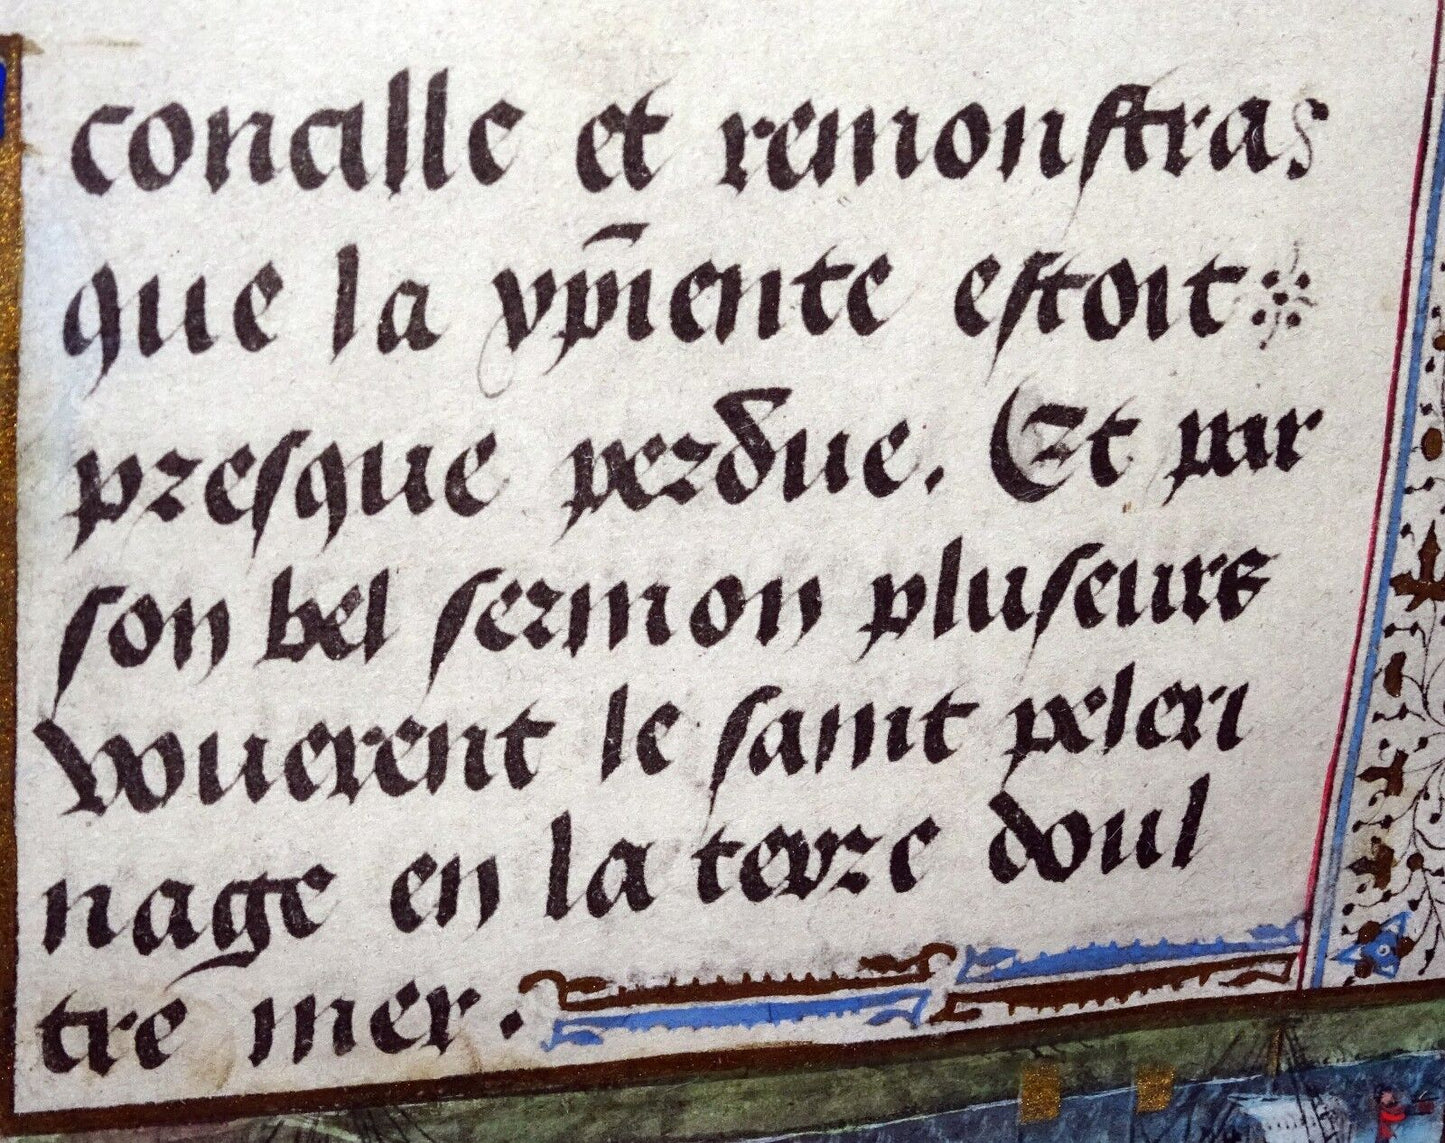 concille et remonstra
que la xp̄iente estoit
presque perdue. Et par
son bel sermon pluseurs
vouerent le saint peleri
nage en la terre doul
tre mer.